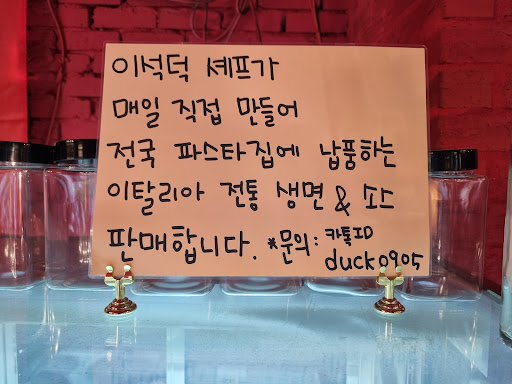 이석덕 셰프가
매일 직접 만들어
전국 파스타집에 납품하는
이탈리아 전통 생면 & 소스
판매합니다. *문의: 카톡ID
duck0905